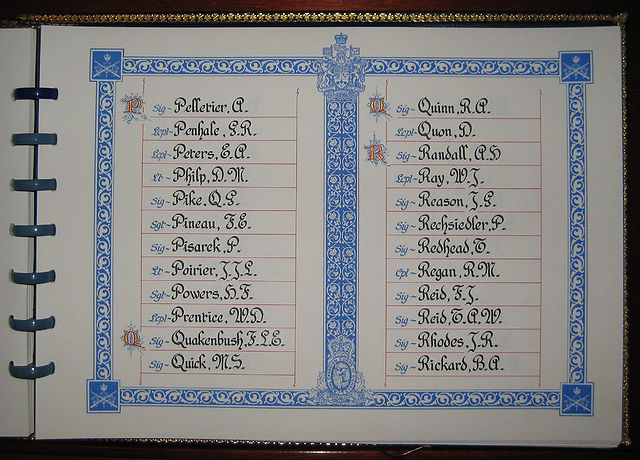 P Sig~ Pelletier, A.
Lcpl~ Penhale, G.R.
Lcpl~ Peters, E.A.
Lt~ Philp, D.M.
Sig~ Pike, Q.G.
Sgt~ Pineau, F.E.
Sig~ Pisarek, P.
Lt~ Poirier, J.J.L.
Sgt~ Powers, H.F.
Lcpl~ Prentice, W.D.
Q Sig~ Quakenbush, F.L.E.
Sig~ Quick, M.S.
Q Sig~ Quinn, R.A.
Lcpl~ Quon, D.
R Sig~ Randall, A.H
Lcpl~ Ray, W.J.
Sig~ Reason, J.G.
Sig~ Rechsiedler, P.
Sig~ Redhead, T.
Cpl~ Regan, R.M.
Sig~ Reid, F.J.
Sig~ Reid, T.A.W.
Sig~ Rhodes, J.R.
Sig~ Rickard, B.A.